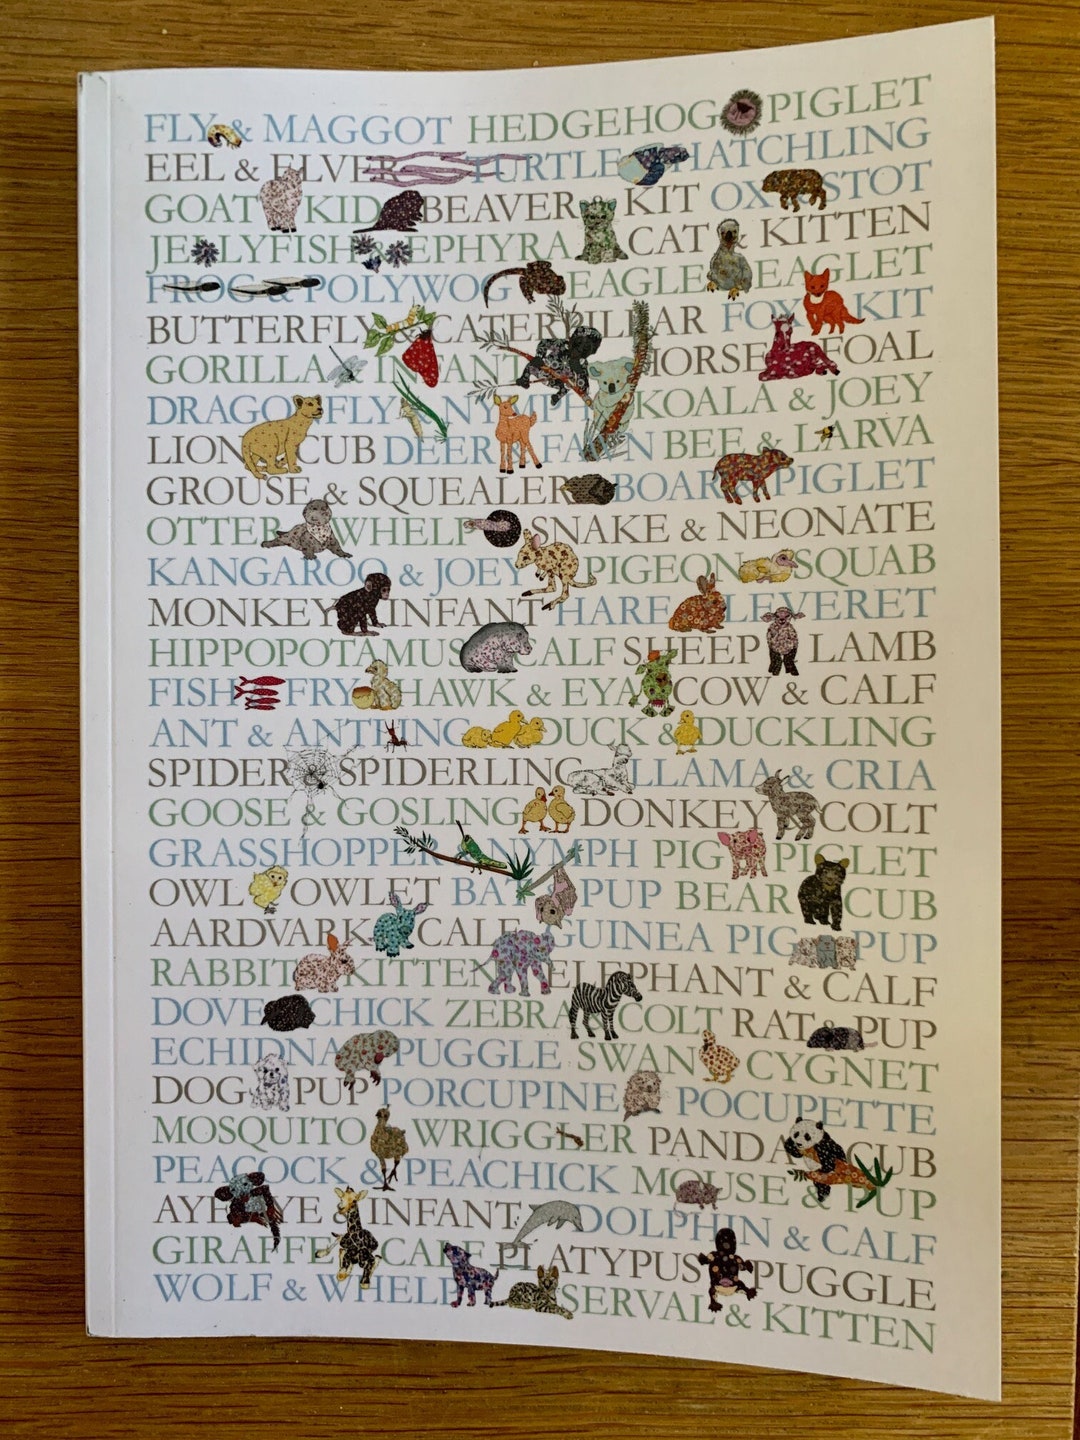 FLY & MAGGOT HEDGEHOG PIGLET
EEL & ELVER TURTLE HATCHLING
GOAT KID BEAVER KIT OX STOT
JELLYFISH & EPHYRA CAT & KITTEN
FROG & POLYWOG EAGLE EAGLET
BUTTERFLY & CATERPILLAR FOX KIT
GORILLA & INFANT HORSE FOAL
DRAGONFLY NYMPH KOALA & JOEY
LION CUB DEER & FAWN BEE & LARVA
GROUSE & SQUEALER BOAR & PIGLET
OTTER WHELP SNAKE & NEONATE
KANGAROO & JOEY PIGEON SQUAB
MONKEY INFANT HARE LEVERET
HIPPOPOTAMUS CALF SHEEP LAMB
FISH FRY HAWK & EYA COW & CALF
ANT & ANTLING DUCK & DUCKLING
SPIDER SPIDERLING LLAMA & CRIA
GOOSE & GOSLING DONKEY COLT
GRASSHOPPER NYMPH PIG PIGLET
OWL OWLET BAT & PUP BEAR CUB
AARDVARK CALF GUINEA PIG PUP
RABBIT KITTEN ELEPHANT & CALF
DOVE CHICK ZEBRA & COLT RAT & PUP
ECHIDNA PUGGLE SWAN CYGNET
DOG PUP PORCUPINE POCUPETTE
MOSQUITO WRIGGLER PANDA CUB
PEACOCK & PEACHICK MOUSE & PUP
AYE AYE & INFANT DOLPHIN & CALF
GIRAFFE CALF PLATYPUS PUGGLE
WOLF & WHELP SERVAL & KITTEN